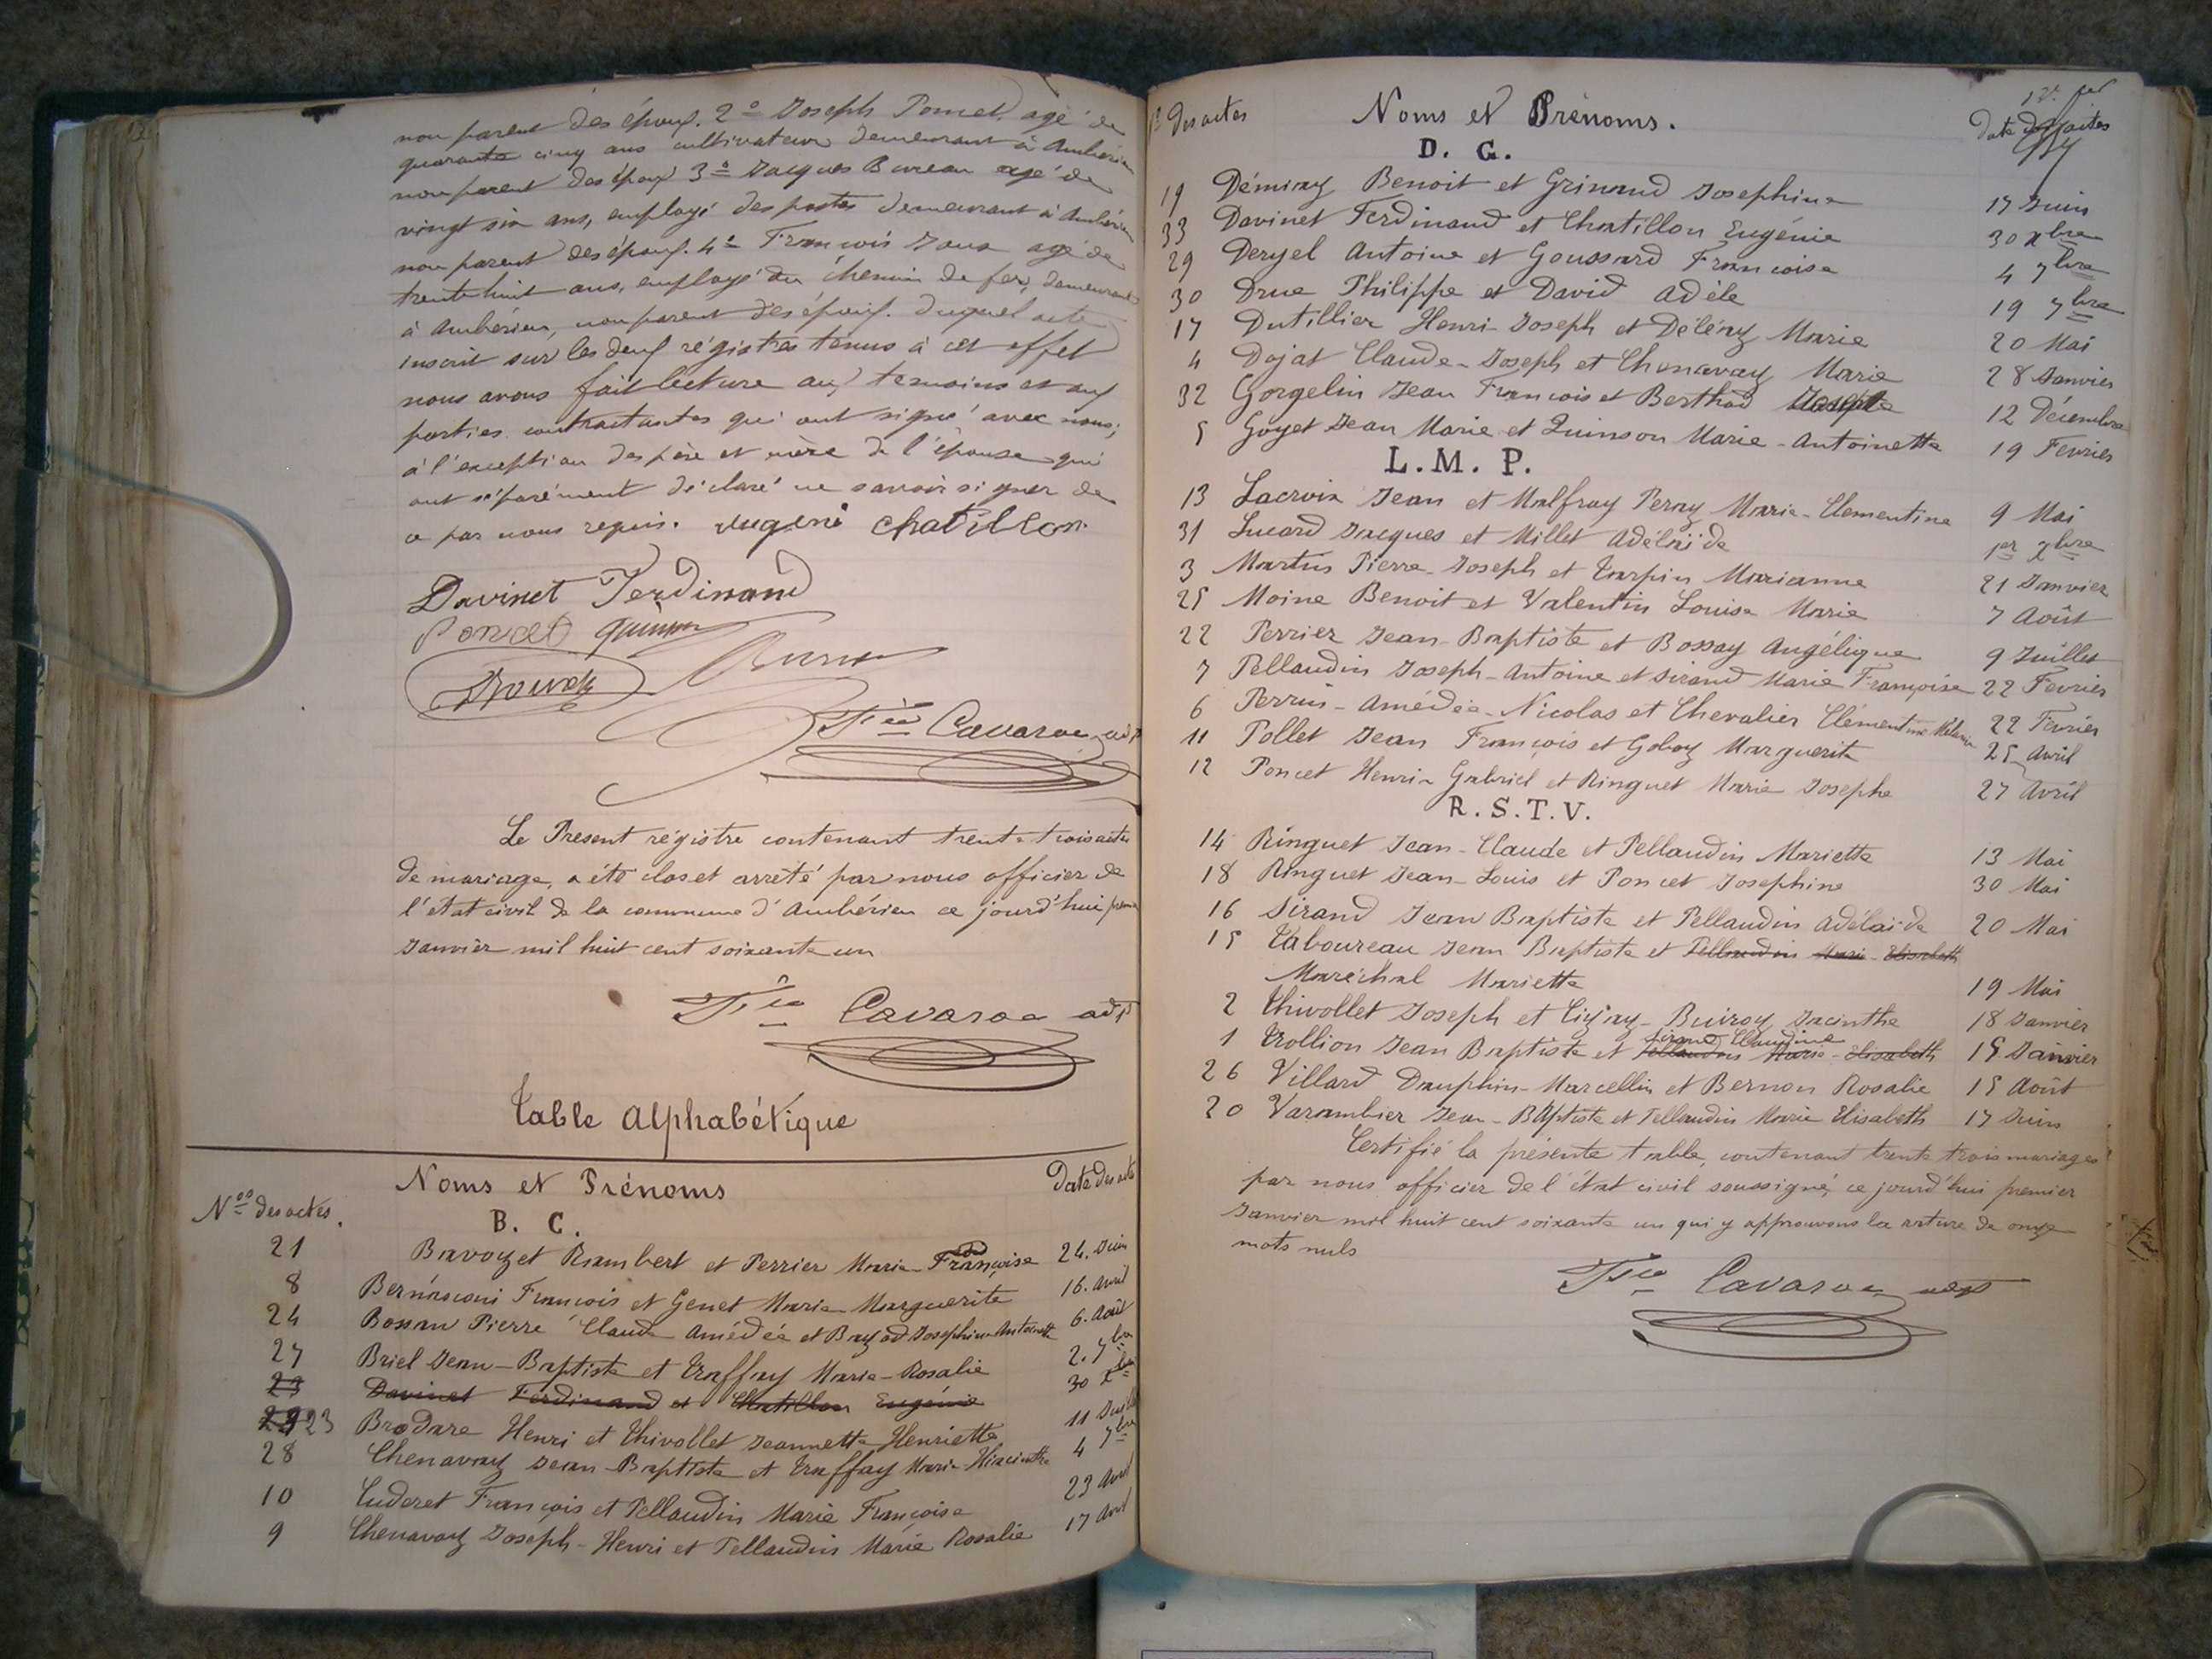 non parent des époux. 2º Joseph Poncet, agé de
quarante cinq ans cultivateur demeurant à Ambérieu
non parent des époux 3º Jacques Bureau agé de
vingt six ans, employé des postes demeurant à Ambérieu
non parent des époux. 4º François agé de
trente huit ans, employé du chemin de fer, demeurant
à Ambérieu, non parent des époux. duquel acte
inscrit sur les deux régistres tenus à cet effet
nous avons fait lecture aux temoins et aux
parties contractantes qui ont signé avec nous,
à l'exception des père et mère de l'épouse qui
ont séparément déclaré ne savoir signer de
ce par nous requis. eugéni chatillon
Davinet Ferdinand
Poncet
Cavaroc adjt
Le Present régistre contenant trente trois actes
de mariage, a été clos et arrêté par nous officier de
l'état civil de la commune d'Ambérieu ce jourd'hui premier
Janvier mil huit cent soixante un
Cavaroc adjt
Table Alphabétique
Nos des actes. Noms et Prénoms Date des actes
B. C.
21 Bavozet Rambert et Perrier Marie-Françoise 24. Juin
8 Bernasconi François et Genet Marie Marguerite 16. Avril
24 Bossan Pierre Claude Amédée et Bayod Josephine Antoinette 6. Août
27 Briel Jean-Baptiste et Traffay Marie-Rosalie 2. 7bre
23 Davinet Ferdinand et Chatillon Eugénie 30 Xbre
23 Brodare Henri et Thivollet Jeannette Henriette 11 Juillet
28 Chenavaz Jean Baptiste et Traffay Marie Hiacinthe 4 7bre
10 Cuderet François et Pellaudin Marie Françoise 23 Avril
9 Chenavaz Joseph-Henri et Pellaudin Marie Rosalie 17 Avril
des actes Noms et Prénoms. Date des actes
D. G.
19 Démiaz Benoit et Grinand Josephine 17 Juin
33 Davinet Ferdinand et Chatillon Eugénie 30 Xbre
29 Deryel Antoine et Goussard Françoise 4 7bre
30 Drue Philippe et David Adèle 19 7bre
17 Dutillier Henri-Joseph et Délénaz Marie 20 Mai
4 Dojat Claude-Joseph et Chenavaz Marie 28 Janvier
32 Gorgelin Jean François et Berthod 12 Décembre
5 Goyet Jean Marie et Quinson Marie-Antoinette 19 Fevrier
L. M. P.
13 Lacroix Jean et Malfroy Pernaz Marie-Clementine 9 Mai
31 Lucard Jacques et Millet Adélaïde 1er Xbre
3 Martin Pierre-Joseph et Tarpin Marianne 21 Janvier
25 Moine Benoit et Valentin Louise Marie 7 Août
22 Perrier Jean-Baptiste et Bossay Angélique 9 Juillet
7 Pellaudin Joseph-Antoine et Sirand Marie Françoise 22 Fevrier
6 Perrin-Amédée-Nicolas et Chevalier Clémentine Mélanie 22 Fevrier
11 Pollet Jean François et Goboz Marguerite 25 Avril
12 Poncet Henri-Gabriel et Ringuet Marie Josephe 27 Avril
R. S. T. V.
14 Ringuet Jean-Claude et Pellaudin Mariette 13 Mai
18 Ringuet Jean-Louis et Poncet Josephine 30 Mai
16 Sirand Jean Baptiste et Pellaudin Adélaïde 20 Mai
15 Taboureau Jean Baptiste et Pellaudin Marie-Elisabeth
Maréchal Mariette 19 Mai
2 Thivollet Joseph et Buiroz Jacinthe 18 Janvier
Sirand Claudine
1 Trollion Jean Baptiste et Pellaudin Marie-Elisabeth 15 Janvier
26 Villard Dauphin-Marcellin et Bernon Rosalie 15 Août
20 Varambier Jean-Baptiste et Pellaudin Marie Elisabeth 17 Juin
Certifié la présente table, contenant trente trois mariages
par nous officier de l'état civil soussigné, ce jourd'hui premier
Janvier mil huit cent soixante un qui y approuvons la rature de onze
mots nuls
Cavaroc adjt